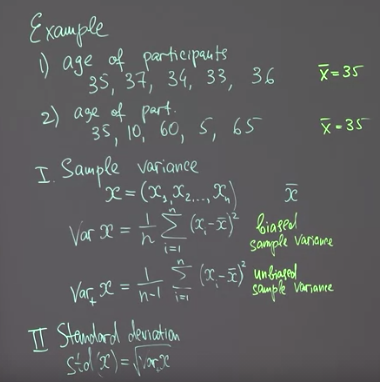 Example
1) age of participants
35, 37, 34, 33, 36 x̄ = 35
2) age of part.
35, 10, 60, 5, 65 x̄ = 35
I. Sample variance
x = (x₁, x₂, ..., xₙ) x̄
Var x = 1/n ∑ᵢ₌₁ⁿ (xᵢ - x̄)² biased sample variance
Var₊ x = 1/(n-1) ∑ᵢ₌₁ⁿ (xᵢ - x̄)² unbiased sample variance
II Standard deviation
std(x) = √Var x